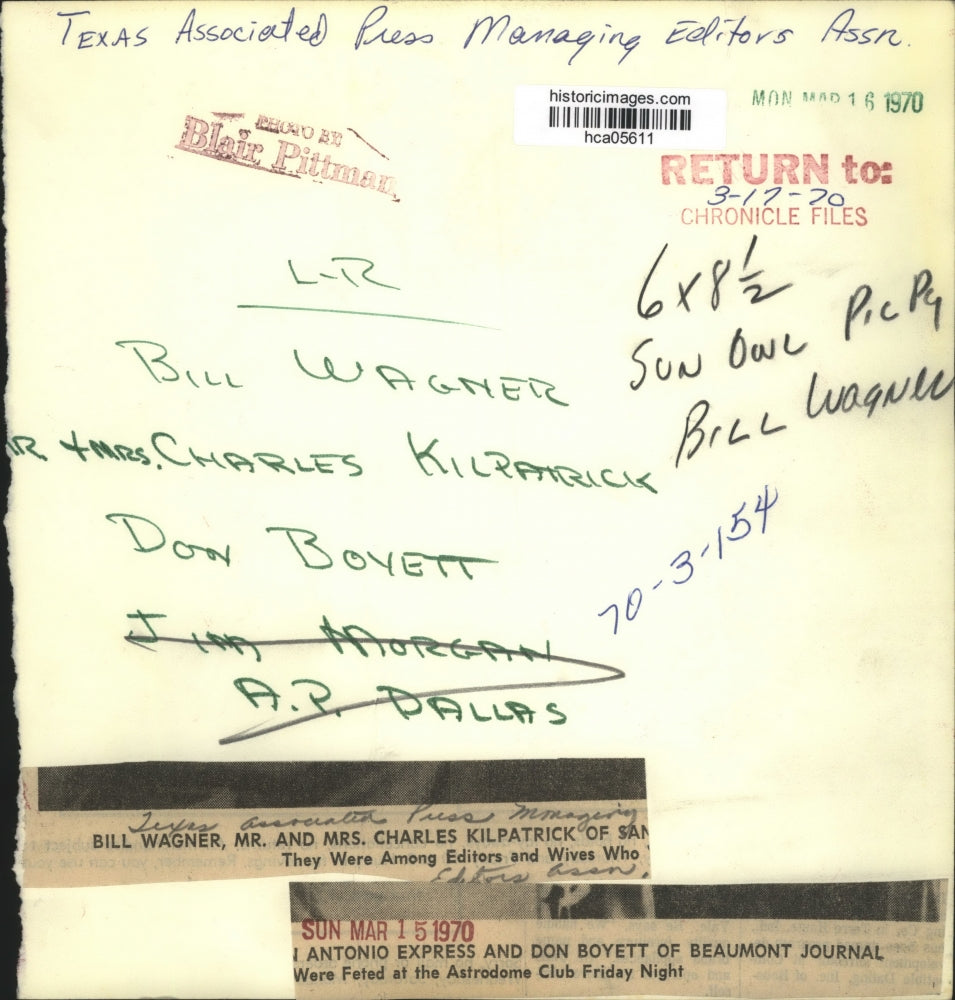 Texas Associated Press Managing Editors Assn.
historicimages.com
hca05611
MON MAR 16 1970
PHOTO BY
Blair Pittman
RETURN to:
3-17-70
CHRONICLE FILES
6x8½
SUN OWL Pic Pg
BILL WAGNER
L-R
BILL WAGNER
MR. + MRS. CHARLES KILPATRICK
DON BOYETT
JIM MORGAN
A.P. DALLAS
70-3-154
Texas Associated Press Managing
BILL WAGNER, MR. AND MRS. CHARLES KILPATRICK OF SAN
They Were Among Editors and Wives Who
Editors Assn.
SUN MAR 15 1970
ANTONIO EXPRESS AND DON BOYETT OF BEAUMONT JOURNAL
Were Feted at the Astrodome Club Friday Night